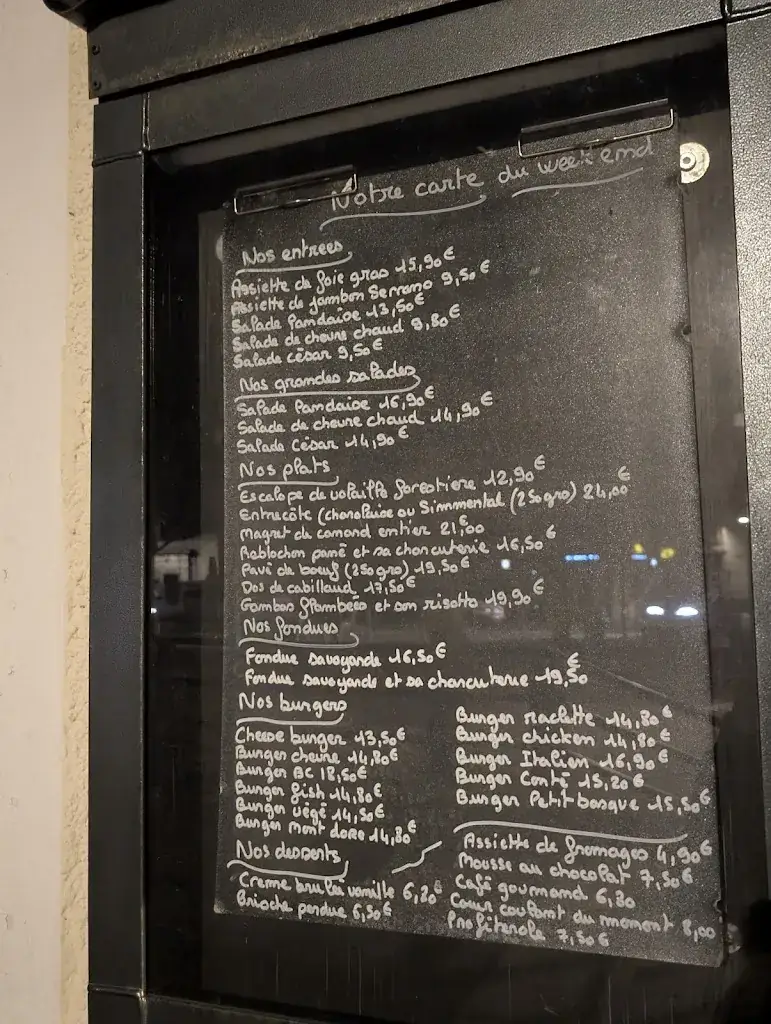 Notre carte du weekend
Nos entrees
Assiette de foie gras 15,90€
Assiette de jambon Serrano 9,50€
Salade Landaise 13,50€
Salade de chevre chaud 9,80€
Salade césar 9,50€
Nos grandes salades
Salade Landaise 16,90€
Salade de chevre chaud 14,90€
Salade César 14,90€
Nos plats
Escalope de volaille forestiere 12,90€
Entrecôte (charolaise ou Simmental (250gro) 24,00€
Magret de canard entier 21,00€
Reblochon pané et sa charcuterie 16,50€
Pavé de boeuf (250gro) 19,50€
Dos de cabillaud 17,50€
Gambas flambées et son risotto 19,90€
Nos fondues
Fondue savoyarde 16,50€
Fondue savoyarde et sa charcuterie 19,50€
Nos burgers
Cheese burger 13,50€
Burger chevre 14,80€
Burger BC 18,50€
Burger fish 14,80€
Burger végé 14,50€
Burger mont dore 14,80€
Burger raclette 14,80€
Burger chicken 14,80€
Burger Italien 16,90€
Burger Comté 15,20€
Burger Petit basque 15,50€
Nos desserts
Creme brulée vanille 6,20€
Brioche perdue 6,50€
Assiette de fromages 4,90€
Mousse au chocolat 7,50€
Café gourmand 6,80
Cœur coulant du moment 8,00
Profiterole 7,50€